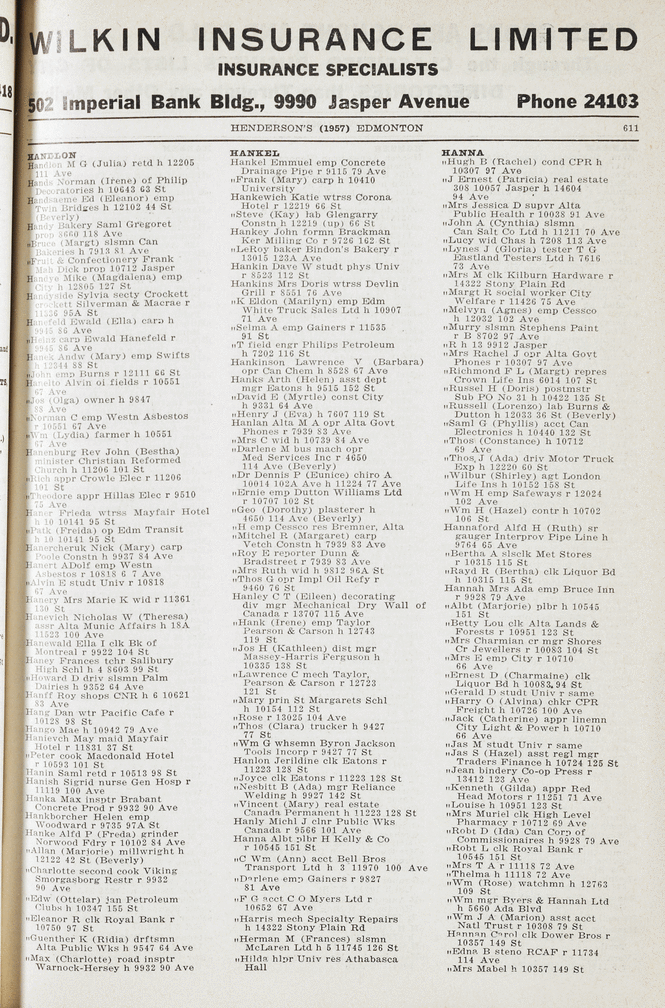 D.
418
WILKIN INSURANCE LIMITED
INSURANCE SPECIALISTS
502 Imperial Bank Bldg., 9990 Jasper Avenue Phone 24103
HENDERSON'S (1957) EDMONTON 611
HANDLON
Handlon M G (Julia) retd h 12205
111 Ave
Hands Norman (Irene) of Philip
Decoratories h 10643 63 St
Handsaeme Ed (Eleanor) emp
Twin Bridges h 12102 44 St
(Beverly)
Handy Bakery Saml Gregoret
prop 8660 118 Ave
"Bruce (Margt) slsmn Can
Bakeries h 7913 81 Ave
"Fruit & Confectionery Frank
Mah Dick prop 10712 Jasper
Handye Mike (Magdalena) emp
City h 12805 127 St
Handyside Sylvia secty Crockett
crockett Silverman & Macrae r
11236 95A St
Hanefeld Ewald (Ella) carp h
9945 86 Ave
"Heinz carp Ewald Hanefeld r
9945 86 Ave
Hanek Andw (Mary) emp Swifts
h 12344 88 St
"John emp Burns r 12111 66 St
Haneito Alvin oi fields r 10551
67 Ave
"Jos (Olga) owner h 9847
88 Ave
"Norman C emp Westn Asbestos
r 10551 67 Ave
"Wm (Lydia) farmer h 10551
67 Ave
Hanenburg Rev John (Bestha)
minister Christian Reformed
Church h 11206 101 St
"Rich appr Crowle Elec r 11206
101 St
"Theodore appr Hillas Elec r 9510
75 Ave
Haner Frieda wtrss Mayfair Hotel
h 10 10141 95 St
"Patk (Freida) op Edm Transit
h 10 10141 95 St
Hanercheruk Nick (Mary) carp
Poole Constn h 9937 84 Ave
Hanert ADolf emp Westn
Asbestos r 10818 6 7 Ave
"Alvin E studt Univ r 10818
67 Ave
Hanery Mrs Marie K wid r 11361
130 St
Hanevich Nicholas W (Theresa)
assr Alta Munic Affairs h 18A
11523 100 Ave
Hanewald Ella I clk Bk of
Montreal r 9922 104 St
Haney Frances tchr Salibury
High Schl h 4 8603 99 St
"Howard D driv slsmn Palm
Dairies h 9352 64 Ave
Hanff Roy shops CNR h 6 10621
83 Ave
Hang Dan wtr Pacific Cafe r
10128 98 St
Hango Mae h 10942 79 Ave
Hanievch May maid Mayfair
Hotel r 11831 37 St
"Peter cook Macdonald Hotel
r 10593 101 St
Hanin Saml retd r 10513 98 St
Hanish Sigrid nurse Gen Hosp r
11119 100 Ave
Hanka Max insptr Brabant
Concrete Prod r 9932 90 Ave
Hankborcher Helen emp
Woodward r 9735 97A St
Hanke Alfd P (Freda) grinder
Norwood Fdry r 10102 84 Ave
"Allan (Marjorie) millwright h
12122 42 St (Beverly)
"Charlotte second cook Viking
Smorgasborg Restr r 9932
90 Ave
"Edw (Ottelar) jan Petroleum
Clubs h 10347 155 St
"Eleanor R clk Royal Bank r
10750 97 St
"Guenther K (Ridia) drftsmn
Alta Public Wks h 9547 64 Ave
"Max (Charlotte) road insptr
Warnock-Hersey h 9932 90 Ave
HANKEL
Hankel Emmuel emp Concrete
Drainage Pipe r 9115 79 Ave
"Frank (Mary) carp h 10410
University
Hankewich Katie wtrss Corona
Hotel r 12219 66 St
"Steve (Kay) lab Glengarry
Constn h 12219 (up) 66 St
Hankey John formn Brackman
Ker Milling Co r 9726 162 St
"LeRoy baker Bindon's Bakery r
13015 123A Ave
Hankin Dave W studt phys Univ
r 8523 112 St
Hankins Mrs Doris wtrss Devlin
Grill r 8551 76 Ave
"K Eldon (Marilyn) emp Edm
White Truck Sales Ltd h 10907
71 Ave
"Selma A emp Gainers r 11535
91 St
"T field engr Philips Petroleum
h 7202 116 St
Hankinson Lawrence V (Barbara)
opr Can Chem h 8528 67 Ave
Hanks Arth (Helen) asst dept
mgr Eatons h 9515 152 St
"David E (Myrtle) const City
h 9331 64 Ave
"Henry J (Eva) h 7607 119 St
Hanlan Alta M A opr Alta Govt
Phones r 7939 83 Ave
"Mrs C wid h 10739 84 Ave
"Darlene M bus mach opr
Med Services Inc r 4650
114 Ave (Beverly)
"Dr Dennis P (Eunice) chiro A
10014 102A Ave h 11224 77 Ave
"Ernie emp Dutton Williams Ltd
r 10707 102 St
"Geo (Dorothy) plasterer h
4650 114 Ave (Beverly)
"H emp Cessco res Bremner, Alta
"Mitchel R (Margaret) carp
Vetch Constn h 7939 83 Ave
"Roy E reporter Dunn &
Bradstreet r 7939 83 Ave
"Mrs Ruth wid h 9812 96A St
"Thos G opr Impl Oil Refy r
9460 76 St
Hanley C T (Eileen) decorating
div mgr Mechanical Dry Wall of
Canada r 13707 115 Ave
"Hank (Irene) emp Taylor
Pearson & Carson h 12743
119 St
"Jos H (Kathleen) dist mgr
Massey-Harris Ferguson h
10335 138 St
"Lawrence C mech Taylor,
Pearson & Carson r 12723
121 St
"Mary prin St Margarets Schl
h 10154 112 St
"Rose r 13025 104 Ave
"Thos (Clara) trucker h 9427
77 St
"Wm G whsemn Byron Jackson
Tools Incorp r 9427 77 St
Hanlon Jerildine clk Eatons r
11223 128 St
"Joyce clk Eatons r 11223 128 St
"Nesbitt B (Ada) mgr Reliance
Welding h 9927 142 St
"Vincent (Mary) real estate
Canada Permanent h 11223 128 St
Hanly Michl J clnr Public Wks
Canada r 9566 101 Ave
Hanna Albt plbr H Kelly & Co
r 10545 151 St
"C Wm (Ann) acct Bell Bros
Transport Ltd h 3 11970 100 Ave
"Darlene emp Gainers r 9827
81 Ave
"F G acct C O Myers Ltd r
10652 67 Ave
"Harris mech Specialty Repairs
h 14322 Stony Plain Rd
"Herman M (Frances) slsmn
McLaren Ltd h 5 11745 126 St
"Hilda hlpr Univ res Athabasca
Hall
HANNA
"Hugh B (Rachel) cond CPR h
10307 97 Ave
"J Ernest (Patricia) real estate
308 10057 Jasper h 14604
94 Ave
"Mrs Jessica D supvr Alta
Public Health r 10038 91 Ave
"John A (Cynthia) slsmn
Can Salt Co Ltd h 11211 70 Ave
"Lucy wid Chas h 7208 113 Ave
"Lynes J (Gloria) tester T G
Eastland Testers Ltd h 7616
73 Ave
"Mrs M clk Kilburn Hardware r
14322 Stony Plain Rd
"Margt R social worker City
Welfare r 11426 75 Ave
"Melvyn (Agnes) emp Cessco
h 12032 102 Ave
"Murry slsmn Stephens Paint
r B 8702 97 Ave
"R h 13 9912 Jasper
"Mrs Rachel J opr Alta Govt
Phones r 10307 97 Ave
"Richmond F L (Margt) repres
Crown Life Ins 6014 107 St
"Russel H (Doris) postmstr
Sub PO No 31 h 10422 135 St
"Russell (Lorenzo) lab Burns &
Dutton h 12033 36 St (Beverly)
"Saml G (Phyllis) acct Can
Electronics h 10440 132 St
"Thos (Constance) h 10712
69 Ave
"Thos J (Ada) driv Motor Truck
Exp h 12220 60 St
"Wilbur (Shirley) agt London
Life Ins h 10152 158 St
"Wm H emp Safeways r 12024
102 Ave
"Wm H (Hazel) contr h 10702
106 St
Hannaford Alfd H (Ruth) sr
gauger Interprov Pipe Line h
9764 65 Ave
"Bertha A slsclk Met Stores
r 10315 115 St
"Rayd R (Bertha) clk Liquor Bd
h 10315 115 St
Hannah Mrs Ada emp Bruce Inn
r 9928 79 Ave
"Albt (Marjorie) plbr h 10545
151 St
"Betty Lou clk Alta Lands &
Forests r 10951 123 St
"Mrs Charmian cr mgr Shores
Cr Jewellers r 10083 104 St
"Mrs E emp City r 10710
66 Ave
"Ernest D (Charmaine) clk
Liquor Bd h 10083 94 St
"Gerald D studt Univ r same
"Harry O (Alvina) chkr CPR
Freight h 10726 100 Ave
"Jack (Catherine) appr linemn
City Light & Power h 10710
66 Ave
"Jas M studt Univ r same
"Jas S (Hazel) asst regl mgr
Traders Finance h 10724 125 St
"Jean bindery Co-op Press r
13412 123 Ave
"Kenneth (Gilda) appr Red
Head Motors r 11251 71 Ave
"Louise h 10951 123 St
"Mrs Muriel clk High Level
Pharmacy r 10712 69 Ave
"Robt D (Ida) Can Corp of
Commissionaires h 9928 79 Ave
"Robt L clk Royal Bank r
10545 151 St
"Mrs T A r 11118 72 Ave
"Thelma h 11118 72 Ave
"Wm (Rose) watchmn h 12763
109 St
"Wm mgr Byers & Hannah Ltd
h 5660 Ada Blvd
"Wm J A (Marion) asst acct
Natl Trust r 10308 79 St
Hannan Carol clk Dower Bros r
10357 149 St
"Edna B steno RCAF r 11734
114 Ave
"Mrs Mabel h 10357 149 St